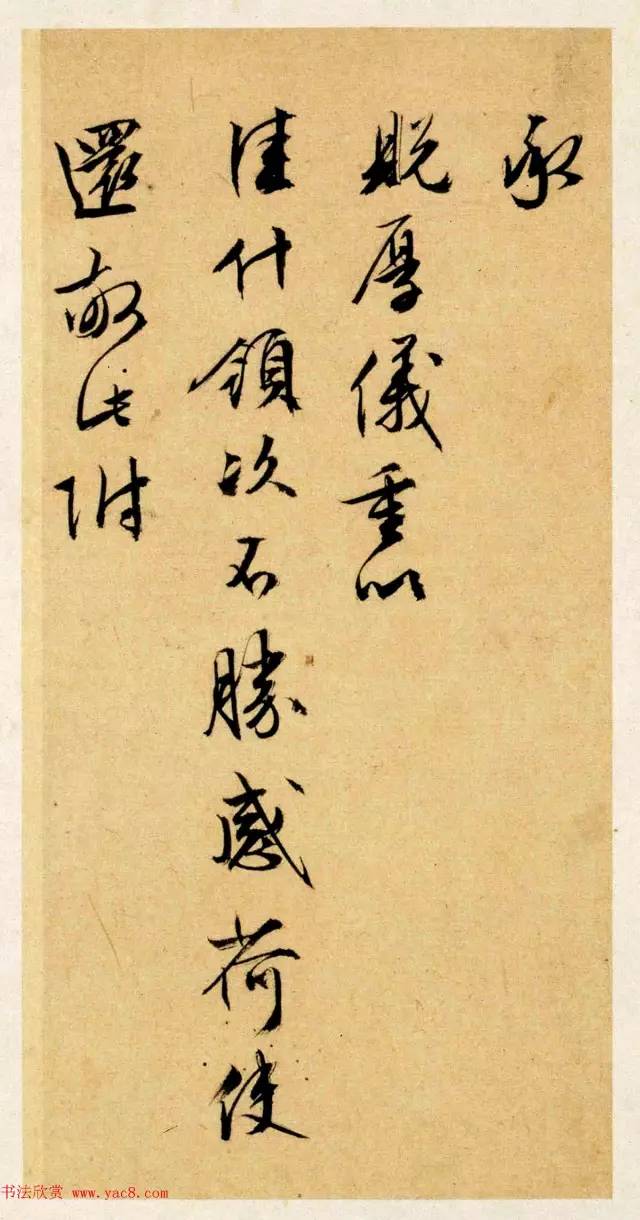 承
贶厚儀重以
佳什領次不勝感荷使
還敬此附
书法欣赏 www.yac8.com